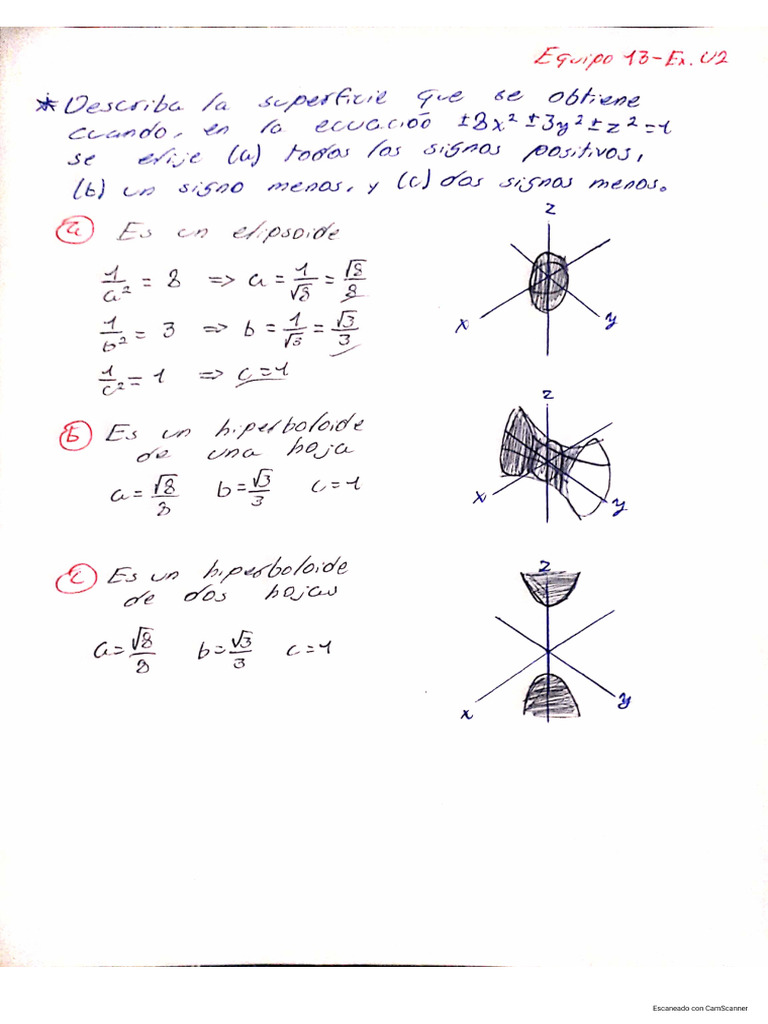 Equipo 13-Ex. U2
* Describa la superficie que se obtiene
cuando, en la ecuació ±8x² ±3y² ±z² = 1
se elije (a) todos los signos positivos,
(b) un signo menos, y (c) dos signos menos.
a) Es un elipsoide
1/a² = 8 => a = 1/√8 = √8/8
1/b² = 3 => b = 1/√3 = √3/3
1/c² = 1 => c=1
z
x
y
b) Es un hiperboloide
de una hoja
a = √8/8 b = √3/3 c=1
z
x
y
c) Es un hiperboloide
de dos hojas
a = √8/8 b = √3/3 c=1
z
x
y
Escaneado con CamScanner